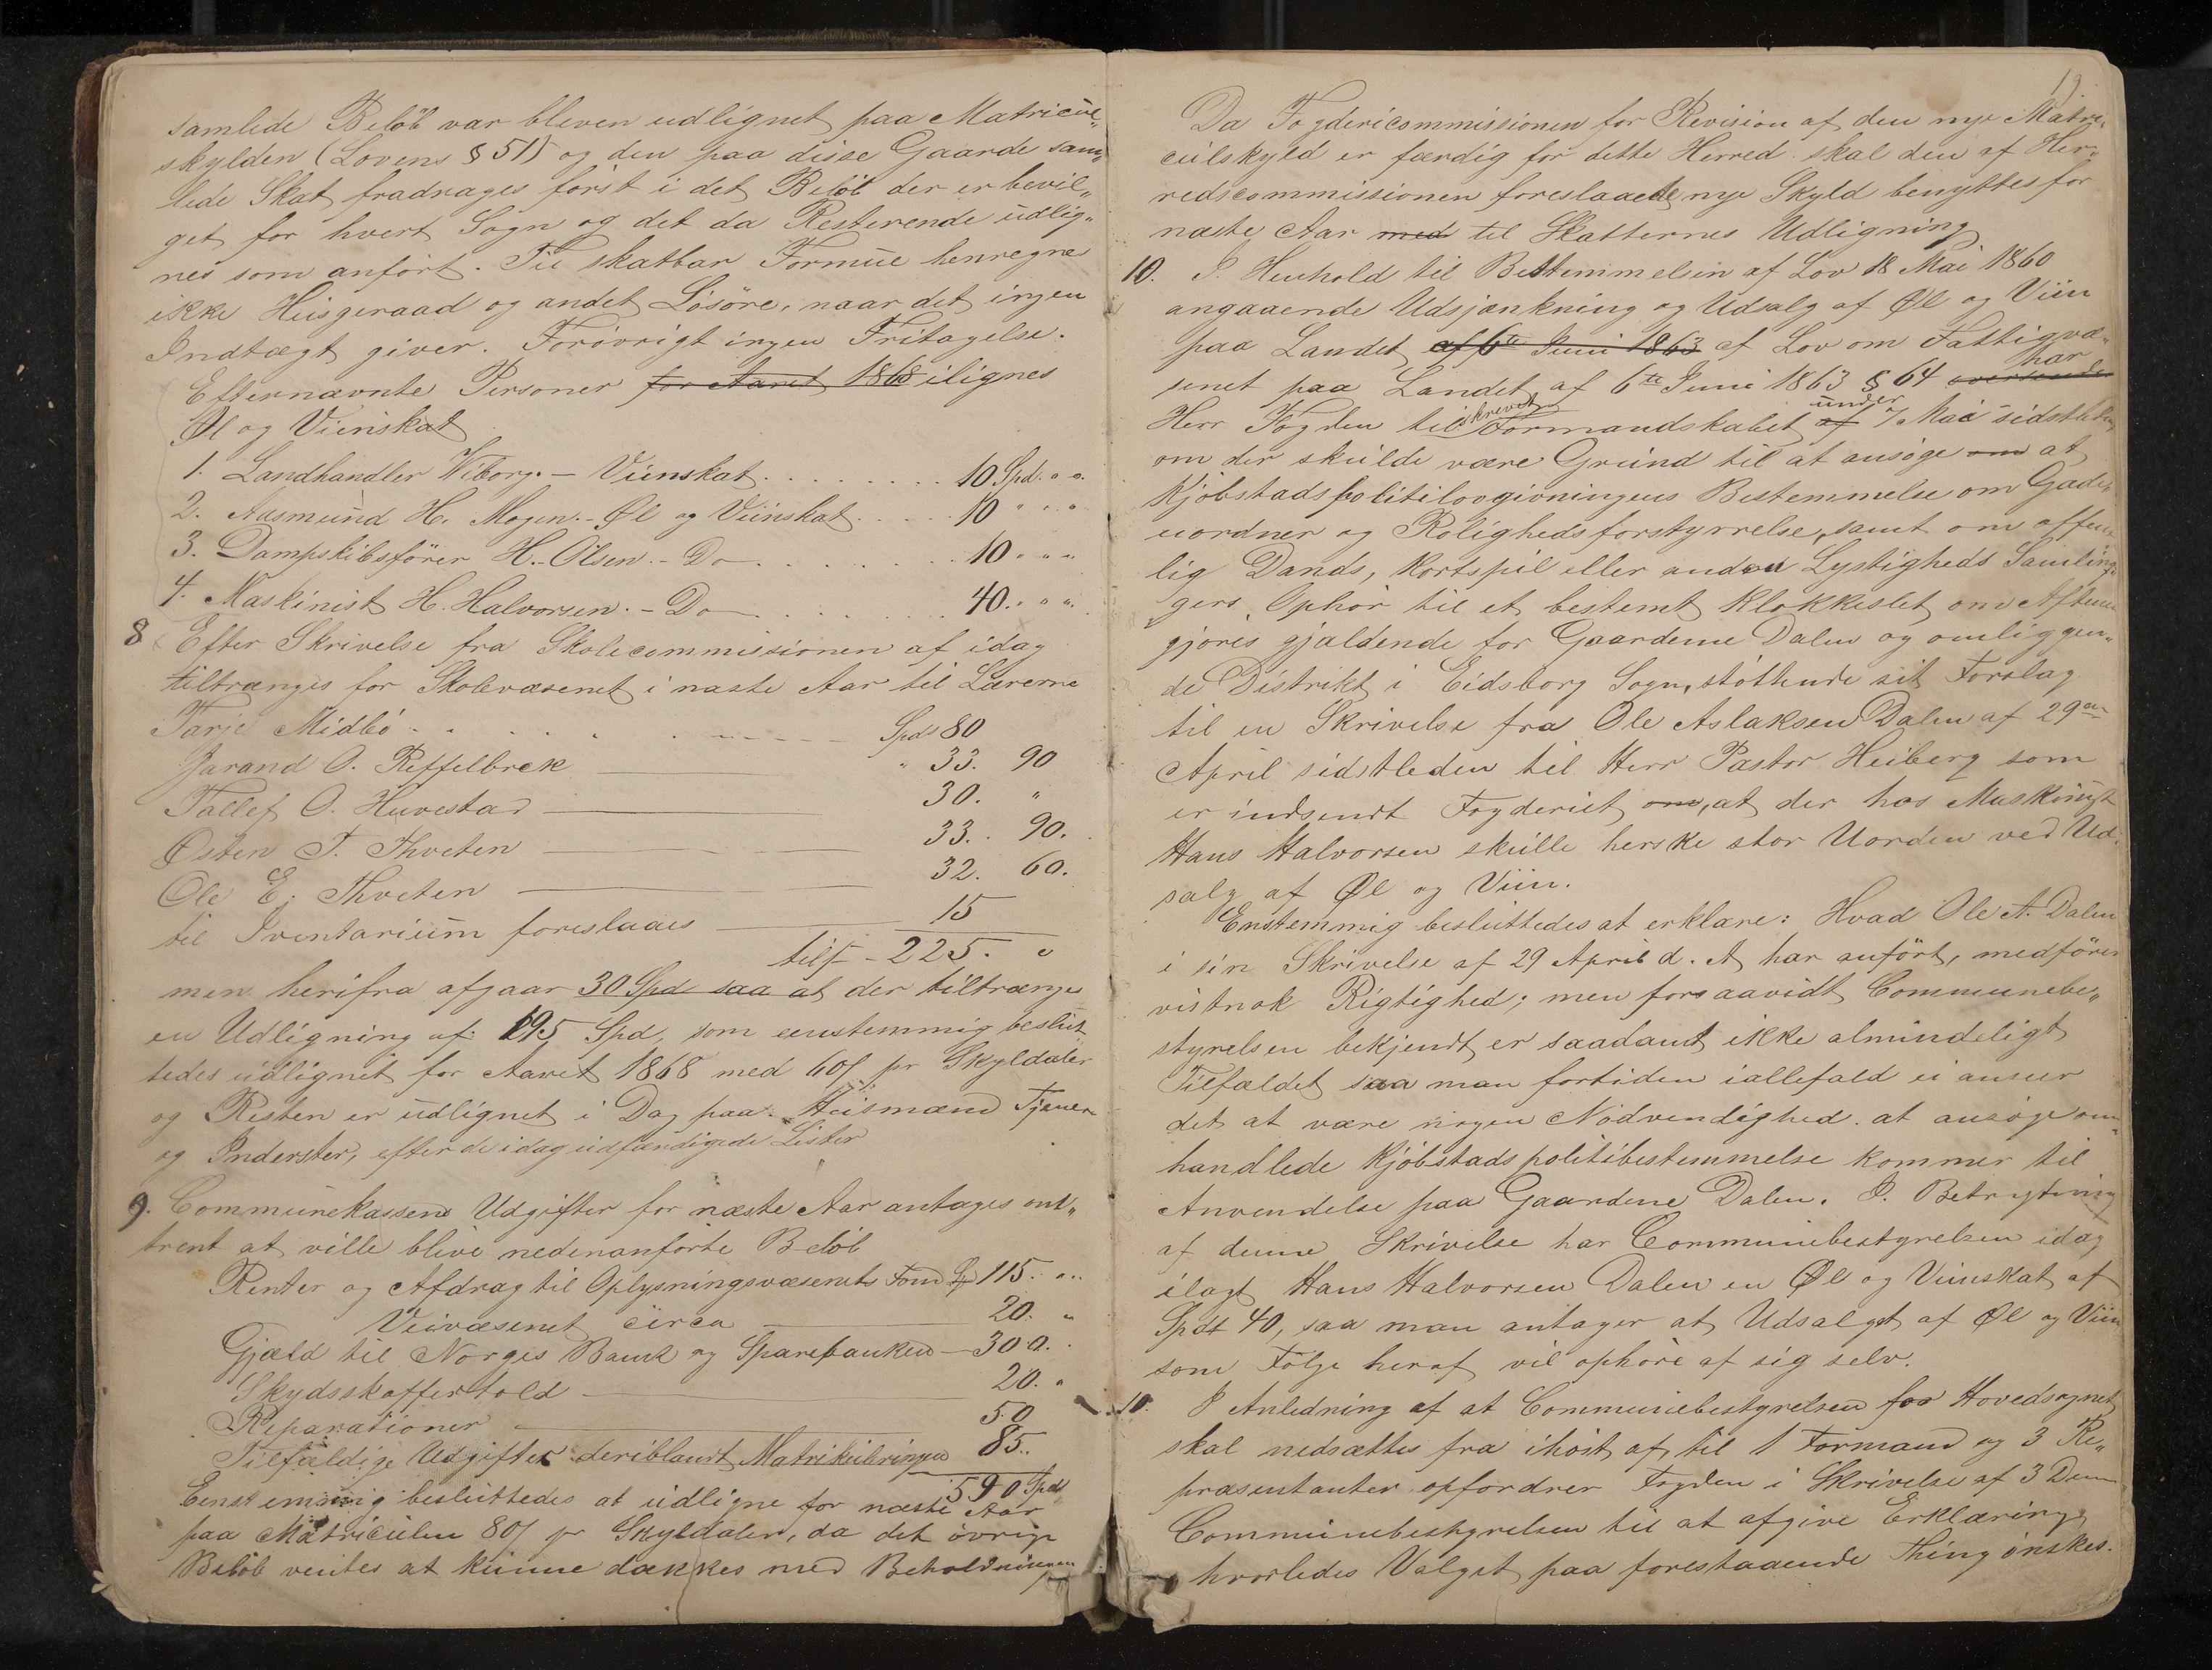 samlede Beløb var bleven udlignet paa Matricul„
skylden (Lovens § 51) og den paa disse Gaarde sam„
lede Skat fradrages først i det Beløb der er bevil„
get for hvert Sogn og det da Resterende udlig„
nes som anført. Til skatbar Formue henregnes
ikke Huusgeraad og andet Løsøre, naar det ingen
Indtægt giver. Forøvrigt ingen Fritagelse.
Efternævnte Personer for Aaret 1868 ilignes
Øl og Viinskat
1. Landhandler Wiborg. – Viinskat . . . . . . . . 10 Spd. „ „
2. Aasmund H. Mogen. - Øl og Viinskat . . . . 10 „ „ „
3. Dampskibsfører H. Olsen. - Do . . . . . . . 10 „ „ „
4. Maskinist H. Halvorsen. - Do . . . . . . . 40 „ „ „
8 Efter Skrivelse fra Skolecommissionen af idag
tiltrænges for Skolevæsenet i næste Aar til Lærerne
Tarje Midbø . . . . Spd 80
Jarand O. Reffelbrek „ 33. 90
Tallef O. Huvestad 30. „
Østen T. Thveten 33. 90.
Ole E. Thveten 32. 60.
til Inventarium foreslaaes 15
tils - 225. „
men herifra afgaar 30 Spd saa at der tiltrænges
en Udligning af 195 Spd, som eenstemmig beslut
tedes udlignet for Aaret 1868 med 60 ʃ pr Skylddaler
og Resten er udlignet i Dag paa Huusmænd Tjenere
og Inderster, efter de idag udfærdigede Lister
9. Communekassens Udgifter for næste Aar antages om„
trent at ville blive nedenanførte Beløb
Renter og Afdrag til Oplysningsvæsenets Fond Sp 115. „ „
Veivæsenet circa 20. „
Gjæld til Norges Bank og Sparebanken – 300.
Skydsskafferhold 20. „
Reparationer 50
Tilfældige Udgifter deriblandt Matrikuleringen 85.
590 Spd
Eenstemmig besluttedes at udligne for næste Aar
paa Matriculen 80 ʃ pr Skylddaler, da det øvrige
Beløb ventes at kunne dækkes med Beholdningen
19.
Da Fogdericommissionen for Revision af den nye Matri„
culskyld er færdig for dette Herred skal den af Her„
redscommissionen foreslaaede nye Skyld benyttes for
næste Aar med til Skatternes Udligning
10. I Henhold til Bestemmelsen af Lov 18 Mai 1860
angaaende Udsjænkning og Udsalg af Øl og Viin
paa Landet af 6te Juni 1863 af Lov om Fattigvæ„
har
senet paa Landet af 6te Juni 1863 § 64
skrevet under
Herr Fogden til Formandskabet af 7 Mai sidstleden
om der skulde være Grund til at ansøge om at
Kjøbstadspolitilovgivningens Bestemmelse om Gade„
uordner og Roligheds forstyrrelse, samt om offent
lig Dands, Kortspil eller anden Lystigheds Samlin„
gers Ophør til et bestemt Klokkeslet om Aftenen
gjøres gjældende for Gaardene Dalen og omliggen„
de Distrikt i Eidsborg Sogn, støttende sit Forslag
til en Skrivelse fra Ole Aslaksen Dalen af 29de
April sidstleden til Herr Pastor Heiberg som
er indsendt Fogderiet om, at der hos Maskinist
Hans Halvorsen skulle herske stor Uorden ved Ud„
salg af Øl og Viin.
Enstemmig besluttedes at erklære: Hvad Ole A. Dalen
i sin Skrivelse af 29 April d. A har anført, medfører
vistnok Rigtighed; men forsaavidt Communebe„
styrelsen bekjendt er saadant ikke almindeligt
Tilfældet saa man fortiden iallefald ei anseer
det at være nogen Nødvendighed at ansøge om„
handlede Kjøbstads politibestemmelse kommer til
Anvendelse paa Gaardene Dalen. I Betragtning
af denne Skrivelse har Communebestyrelsen idag
ilagt Hans Halvorsen Dalen en Øl og Viinskat af
Spd 40, saa man antager at Udsalget af Øl og Viin
som Følge heraf vil ophøre af sig selv.
10. I Anledning af at Communebestyrelsen for Hovedsognet
skal nedsættes fra ihøst af, til 1 Formand og 3 Re„
præsentanter opfordrer Fogden i Skrivelse af 3 Dennes
Communebestyrelsen til at afgive Erklæring
hvorledes Valget paa forestaaende Thing ønskes.